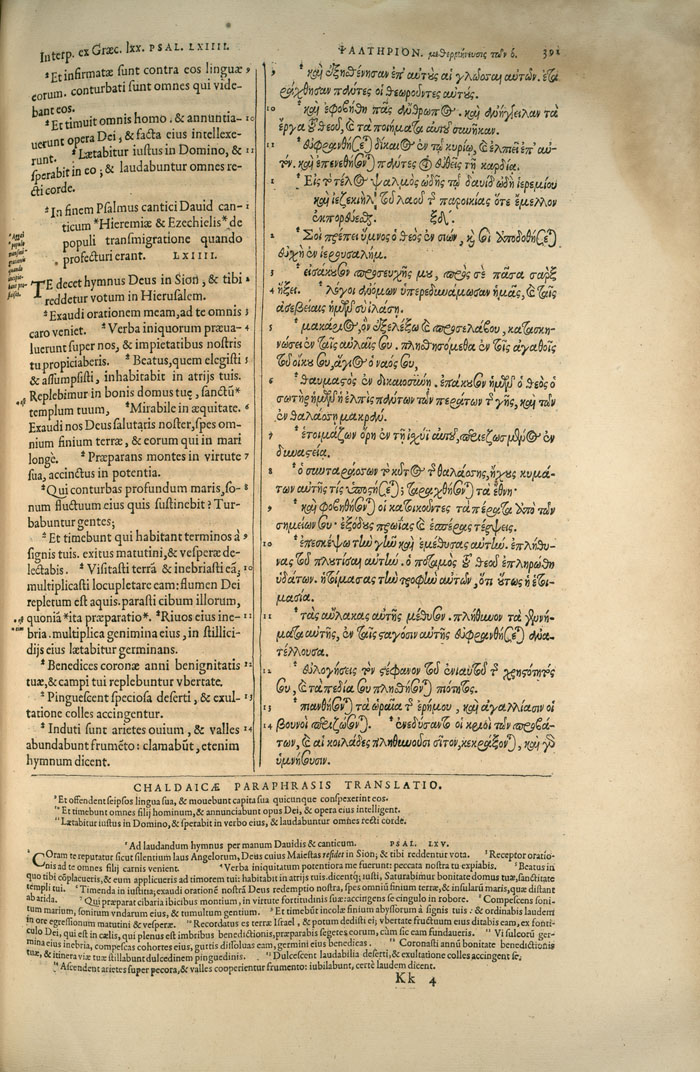 Interp. ex Græc. lxx. PSAL. LXIIII.
Et infirmatæ sunt contra eos linguæ 9
eorum. conturbati sunt omnes qui vide-
bant eos.
Et timuit omnis homo. & annuntia- 10
uerunt opera Dei, & facta eius intellexe-
runt. Lætabitur iustus in Domino, & 11
sperabit in eo; & laudabuntur omnes re-
cti corde.
In finem Psalmus cantici Dauid can- 1
ticum *Hieremiæ & Ezechielis* de
populi transmigratione quando
profecturi erant. LXIIII.
TE decet hymnus Deus in Sion, & tibi 2
reddetur votum in Hierusalem.
Exaudi orationem meam, ad te omnis 3
caro veniet. Verba iniquorum præua- 4
luerunt super nos, & impietatibus nostris
tu propiciaberis. Beatus, quem elegisti 5
& assumpsisti, inhabitabit in atrijs tuis.
Replebimur in bonis domus tuę, sanctũ*
templum tuum, Mirabile in æquitate. 6
Exaudi nos Deus salutaris noster, spes om-
nium finium terræ, & eorum qui in mari
longè. Præparans montes in virtute 7
sua, accinctus in potentia.
Qui conturbas profundum maris, so- 8
num fluctuum eius quis sustinebit? Tur-
babuntur gentes;
Et timebunt qui habitant terminos à 9
signis tuis. exitus matutini, & vesperæ de-
lectabis. Visitasti terrã & inebriasti eã, 10
multiplicasti locupletare eam: flumen Dei
repletum est aquis. parasti cibum illorum,
quoniã *ita præparatio*. Riuos eius ine- 11
bria. multiplica genimina eius, in stillici-
dijs eius lætabitur germinans.
Benedices coronæ anni benignitatis 12
tuæ, & campi tui replebuntur vbertate.
Pinguescent speciosa deserti, & exul- 13
tatione colles accingentur.
Induti sunt arietes ouium, & valles 14
abundabunt frumẽto: clamabũt, etenim
hymnum dicent.
ΨΑΛΤΗΡΙΟΝ. μεθερμήνευσις τῶν ό. 391
9 καὶ ἐξησθένησαν ἐπ' αὐτοὺς αἱ γλῶσσαι αὐτῶν. ἐτα-
ράχθησαν πάντες οἱ θεωροῦντες αὐτούς.
10 καὶ ἐφοβήθη πᾶς ἄνθρωπος. καὶ ἀνήγγειλαν τὰ
ἔργα τοῦ θεοῦ, καὶ τὰ ποιήματα αὐτοῦ συνῆκαν.
11 εὐφρανθήσεται δίκαιος ἐν τῷ κυρίῳ, καὶ ἐλπιεῖ ἐπ' αὐ-
τόν. καὶ ἐπαινεθήσονται πάντες οἱ εὐθεῖς τῇ καρδίᾳ.
1 Εἰς τὸ τέλος ψαλμὸς ᾠδῆς τῷ δαυὶδ ᾠδὴ ἱερεμίου
καὶ ἰεζεκιὴλ τοῦ λαοῦ τῆς παροικίας ὅτε ἔμελλον
ἐκπορεύεσθαι. ξδ'.
2 Σοὶ πρέπει ὕμνος ὁ θεὸς ἐν σιὼν, καὶ σοὶ ἀποδοθήσεται
εὐχὴ ἐν ἱερουσαλήμ.
3 εἰσάκουσον προσευχῆς μου, πρὸς σὲ πᾶσα σὰρξ
4 ἥξει. λόγοι ἀνόμων ὑπερεδυνάμωσαν ἡμᾶς, καὶ ταῖς
ἀσεβείαις ἡμῶν σὺ ἱλάσῃ.
5 μακάριος, ὃν ἐξελέξω καὶ προσελάβου, κατασκη-
νώσει ἐν ταῖς αὐλαῖς σου. πλησθησόμεθα ἐν τοῖς ἀγαθοῖς
τοῦ οἴκου σου, ἅγιος ὁ ναός σου,
6 θαυμαστὸς ἐν δικαιοσύνῃ. ἐπάκουσον ἡμῶν ὁ θεὸς ὁ
σωτὴρ ἡμῶν ἡ ἐλπὶς πάντων τῶν περάτων τῆς γῆς, καὶ τῶν
ἐν θαλάσσῃ μακράν.
7 ἑτοιμάζων ὄρη ἐν τῇ ἰσχύϊ αὐτοῦ, περιεζωσμένος ἐν
δυναστείᾳ.
8 ὁ συνταράσσων τὸ κύτος τῆς θαλάσσης, ἤχους κυμά-
των αὐτῆς τίς ὑποστήσεται; ταραχθήσονται τὰ ἔθνη.
9 καὶ φοβηθήσονται οἱ κατοικοῦντες τὰ πέρατα ἀπὸ τῶν
σημείων σου. ἐξόδους πρωΐας καὶ ἑσπέρας τέρψεις.
10 ἐπεσκέψω τὴν γῆν καὶ ἐμέθυσας αὐτὴν. ἐπλήθυ-
νας τοῦ πλουτίσαι αὐτήν. ὁ ποταμὸς τοῦ θεοῦ ἐπληρώθη
ὑδάτων. ἡτοίμασας τὴν τροφὴν αὐτῶν, ὅτι οὕτως ἡ ἑτοι-
μασία.
11 τοὺς αὔλακας αὐτῆς μέθυσον. πλήθυνον τὰ γεννή-
ματα αὐτῆς, ἐν ταῖς σταγόσιν αὐτῆς εὐφρανθήσεται ἀνα-
τέλλουσα.
12 εὐλογήσεις τὸν στέφανον τοῦ ἐνιαυτοῦ τῆς χρηστότητός
σου, καὶ τὰ πεδία σου πλησθήσονται πιότητος.
13 πιανθήσονται τὰ ὡραῖα τῆς ἐρήμου, καὶ ἀγαλλίασιν οἱ
14 βουνοὶ περιζώσονται. ἐνεδύσαντο οἱ κριοὶ τῶν προβά-
των, καὶ αἱ κοιλάδες πληθυνοῦσι σῖτον, κεκράξονται, καὶ γὰρ
ὑμνήσουσιν.
CHALDAICÆ PARAPHRASIS TRANSLATIO.
9 Et offendent seipsos lingua sua, & mouebunt capita sua quicunque conspexerint eos.
10 Et timebunt omnes filij hominum, & annunciabunt opus Dei, & opera eius intelligent.
11 Lætabitur iustus in Domino, & sperabit in verbo eius, & laudabuntur omnes recti corde.
1 Ad laudandum hymnus per manum Dauidis & canticum. PSAL. LXV.
COram te reputatur sicut silentium laus Angelorum, Deus cuius Maiestas residet in Sion; & tibi reddentur vota. 3 Receptor oratio-
nis ad te omnes filij carnis venient. 4 Verba iniquitatum potentiora me fuerunt: peccata nostra tu expiabis. 5 Beatus in
quo tibi cõplacueris, & eum applicueris ad timorem tui: habitabit in atrijs tuis. dicentq; iusti, Saturabimur bonitate domus tuæ, sanctitate
templi tui. 6 Timenda in iustitia; exaudi orationẽ nostrã Deus redemptio nostra, spes omniũ finium terræ, & insularũ maris, quæ distant
ab arida. 7 Qui præparat cibaria ibicibus montium, in virtute fortitudinis suæ: accingens se cingulo in robore. 8 Compescens soni-
tum marium, sonitum vndarum eius, & tumultum gentium. 9 Et timebũt incolæ finium abyssorum à signis tuis: & ordinabis laudem
in ore egressionum matutini & vesperæ. 10 Recordatus es terræ Israel, & potum dedisti ei; vbertate fructuum eius ditabis eam, ex fonti-
culo Dei, qui est in cælis, qui plenus est imbribus benedictionis, præparabis segetes eorum, cùm sic eam fundaueris. 11 Vt sulcorũ ger-
mina eius inebria, compescas cohortes eius, guttis dissoluas eam, germini eius benedicas. 12 Coronasti annũ bonitate benedictionis
tuæ, & itinera viæ tuæ stillabunt dulcedinem pinguedinis. 13 Dulcescent laudabilia deserti, & exultatione colles accingent se.
14 Ascendent arietes super pecora, & valles cooperientur frumento: iubilabunt, certè laudem dicent.
Kk 4